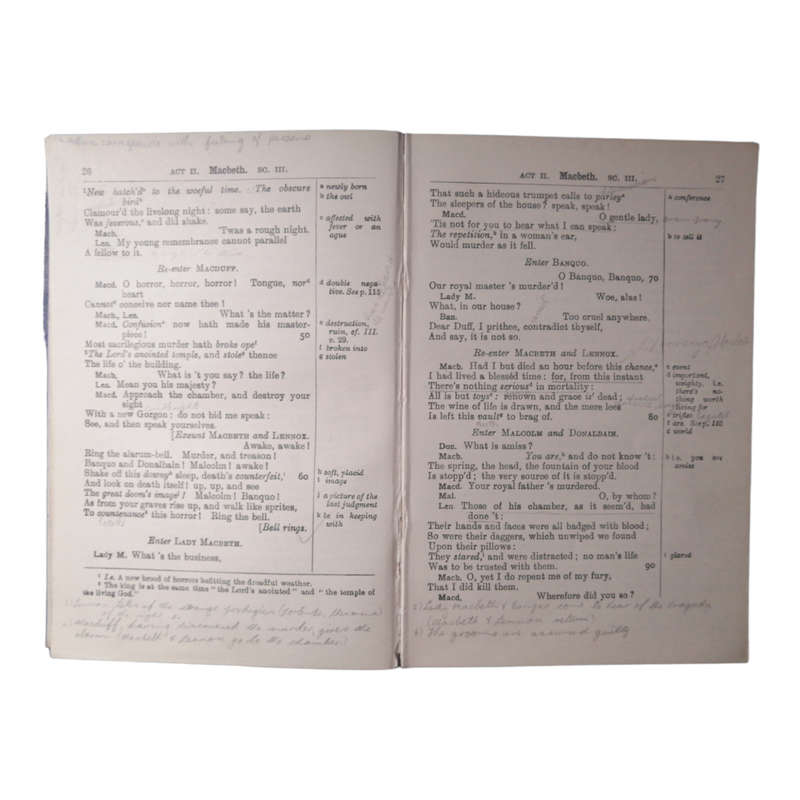 26
ACT II. Macbeth. SC. III.
¹New hatch'd to the woeful time. The obscure
birdᵇ
Clamour'd the livelong night: some say, the earth
Was feverous,ᶜ and did shake.
Mach. 'Twas a rough night.
Len. My young remembrance cannot parallel
A fellow to it.
Re-enter MACDUFF.
Macd. O horror, horror, horror! Tongue, norᵈ
heart
Cannotᵈ conceive nor name thee!
Macb., Len. What's the matter?
Macd. Confusionᵉ now hath made his master-
piece! 50
Most sacrilegious murder hath broke opeᶠ
²The Lord's anointed temple, and stoleᵍ thence
The life o' the building.
Macb. What is't you say? the life?
Len. Mean you his majesty?
Macd. Approach the chamber, and destroy your
sight
With a new Gorgon: do not bid me speak:
See, and then speak yourselves.
[Exeunt MACBETH and LENNOX.
Awake, awake!
Ring the alarum-bell. Murder, and treason!
Banquo and Donalbain! Malcolm! awake!
Shake off this downyʰ sleep, death's counterfeit,ⁱ 60
And look on death itself! up, up, and see
The great doom's imageʲ! Malcolm! Banquo!
As from your graves rise up, and walk like sprites,
To countenanceᵏ this horror! Ring the bell.
[Bell rings.
Enter LADY MACBETH.
Lady M. What's the business,
ᵃ newly born
ᵇ the owl
ᶜ affected with
fever or an
ague
ᵈ double nega-
tive. See p. 115
ᵉ destruction,
ruin, cf. III.
v. 29.
ᶠ broken into
ᵍ stolen
ʰ soft, placid
ⁱ image
ʲ a picture of the
last judgment
ᵏ be in keeping
with
¹ I.e. A new brood of horrors befitting the dreadful weather.
² The king is at the same time "the Lord's anointed" and "the temple of
the living God."
ACT II. Macbeth. SC. III.
27
That such a hideous trumpet calls to parleyᵃ
The sleepers of the house? speak, speak!
Macd. O gentle lady,
'Tis not for you to hear what I can speak:
The repetition,ᵇ in a woman's ear,
Would murder as it fell.
Enter BANQUO.
O Banquo, Banquo, 70
Our royal master's murder'd!
Lady M. Woe, alas!
What, in our house?
Ban. Too cruel anywhere.
Dear Duff, I prithee, contradict thyself,
And say, it is not so.
Re-enter MACBETH and LENNOX.
Macb. Had I but died an hour before this chance,ᶜ
I had lived a blessèd time: for, from this instant
There's nothing seriousᵈ in mortality:
All is but toysᵉ: renown and grace isᶠ dead;
The wine of life is drawn, and the mere lees
Is left this vaultᵍ to brag of. 80
Enter MALCOLM and DONALBAIN.
Don. What is amiss?
Macb. You are,ʰ and do not know 't:
The spring, the head, the fountain of your blood
Is stopp'd; the very source of it is stopp'd.
Macd. Your royal father's murdered.
Mal. O, by whom?
Len Those of his chamber, as it seem'd, bad
done 't:
Their hands and faces were all badged with blood;
So were their daggers, which unwiped we found
Upon their pillows:
They stared,ⁱ and were distracted; no man's life
Was to be trusted with them. 90
Macb. O, yet I do repent me of my fury,
That I did kill them.
Macd. Wherefore did you so?
ᵃ conference
ᵇ to tell it
ᶜ event
ᵈ important,
weighty, i.e.
there's no-
thing worth
living for
ᵉ trifles
ᶠ are. See p. 110
ᵍ world
ʰ i.e. you are
amiss
ⁱ glared